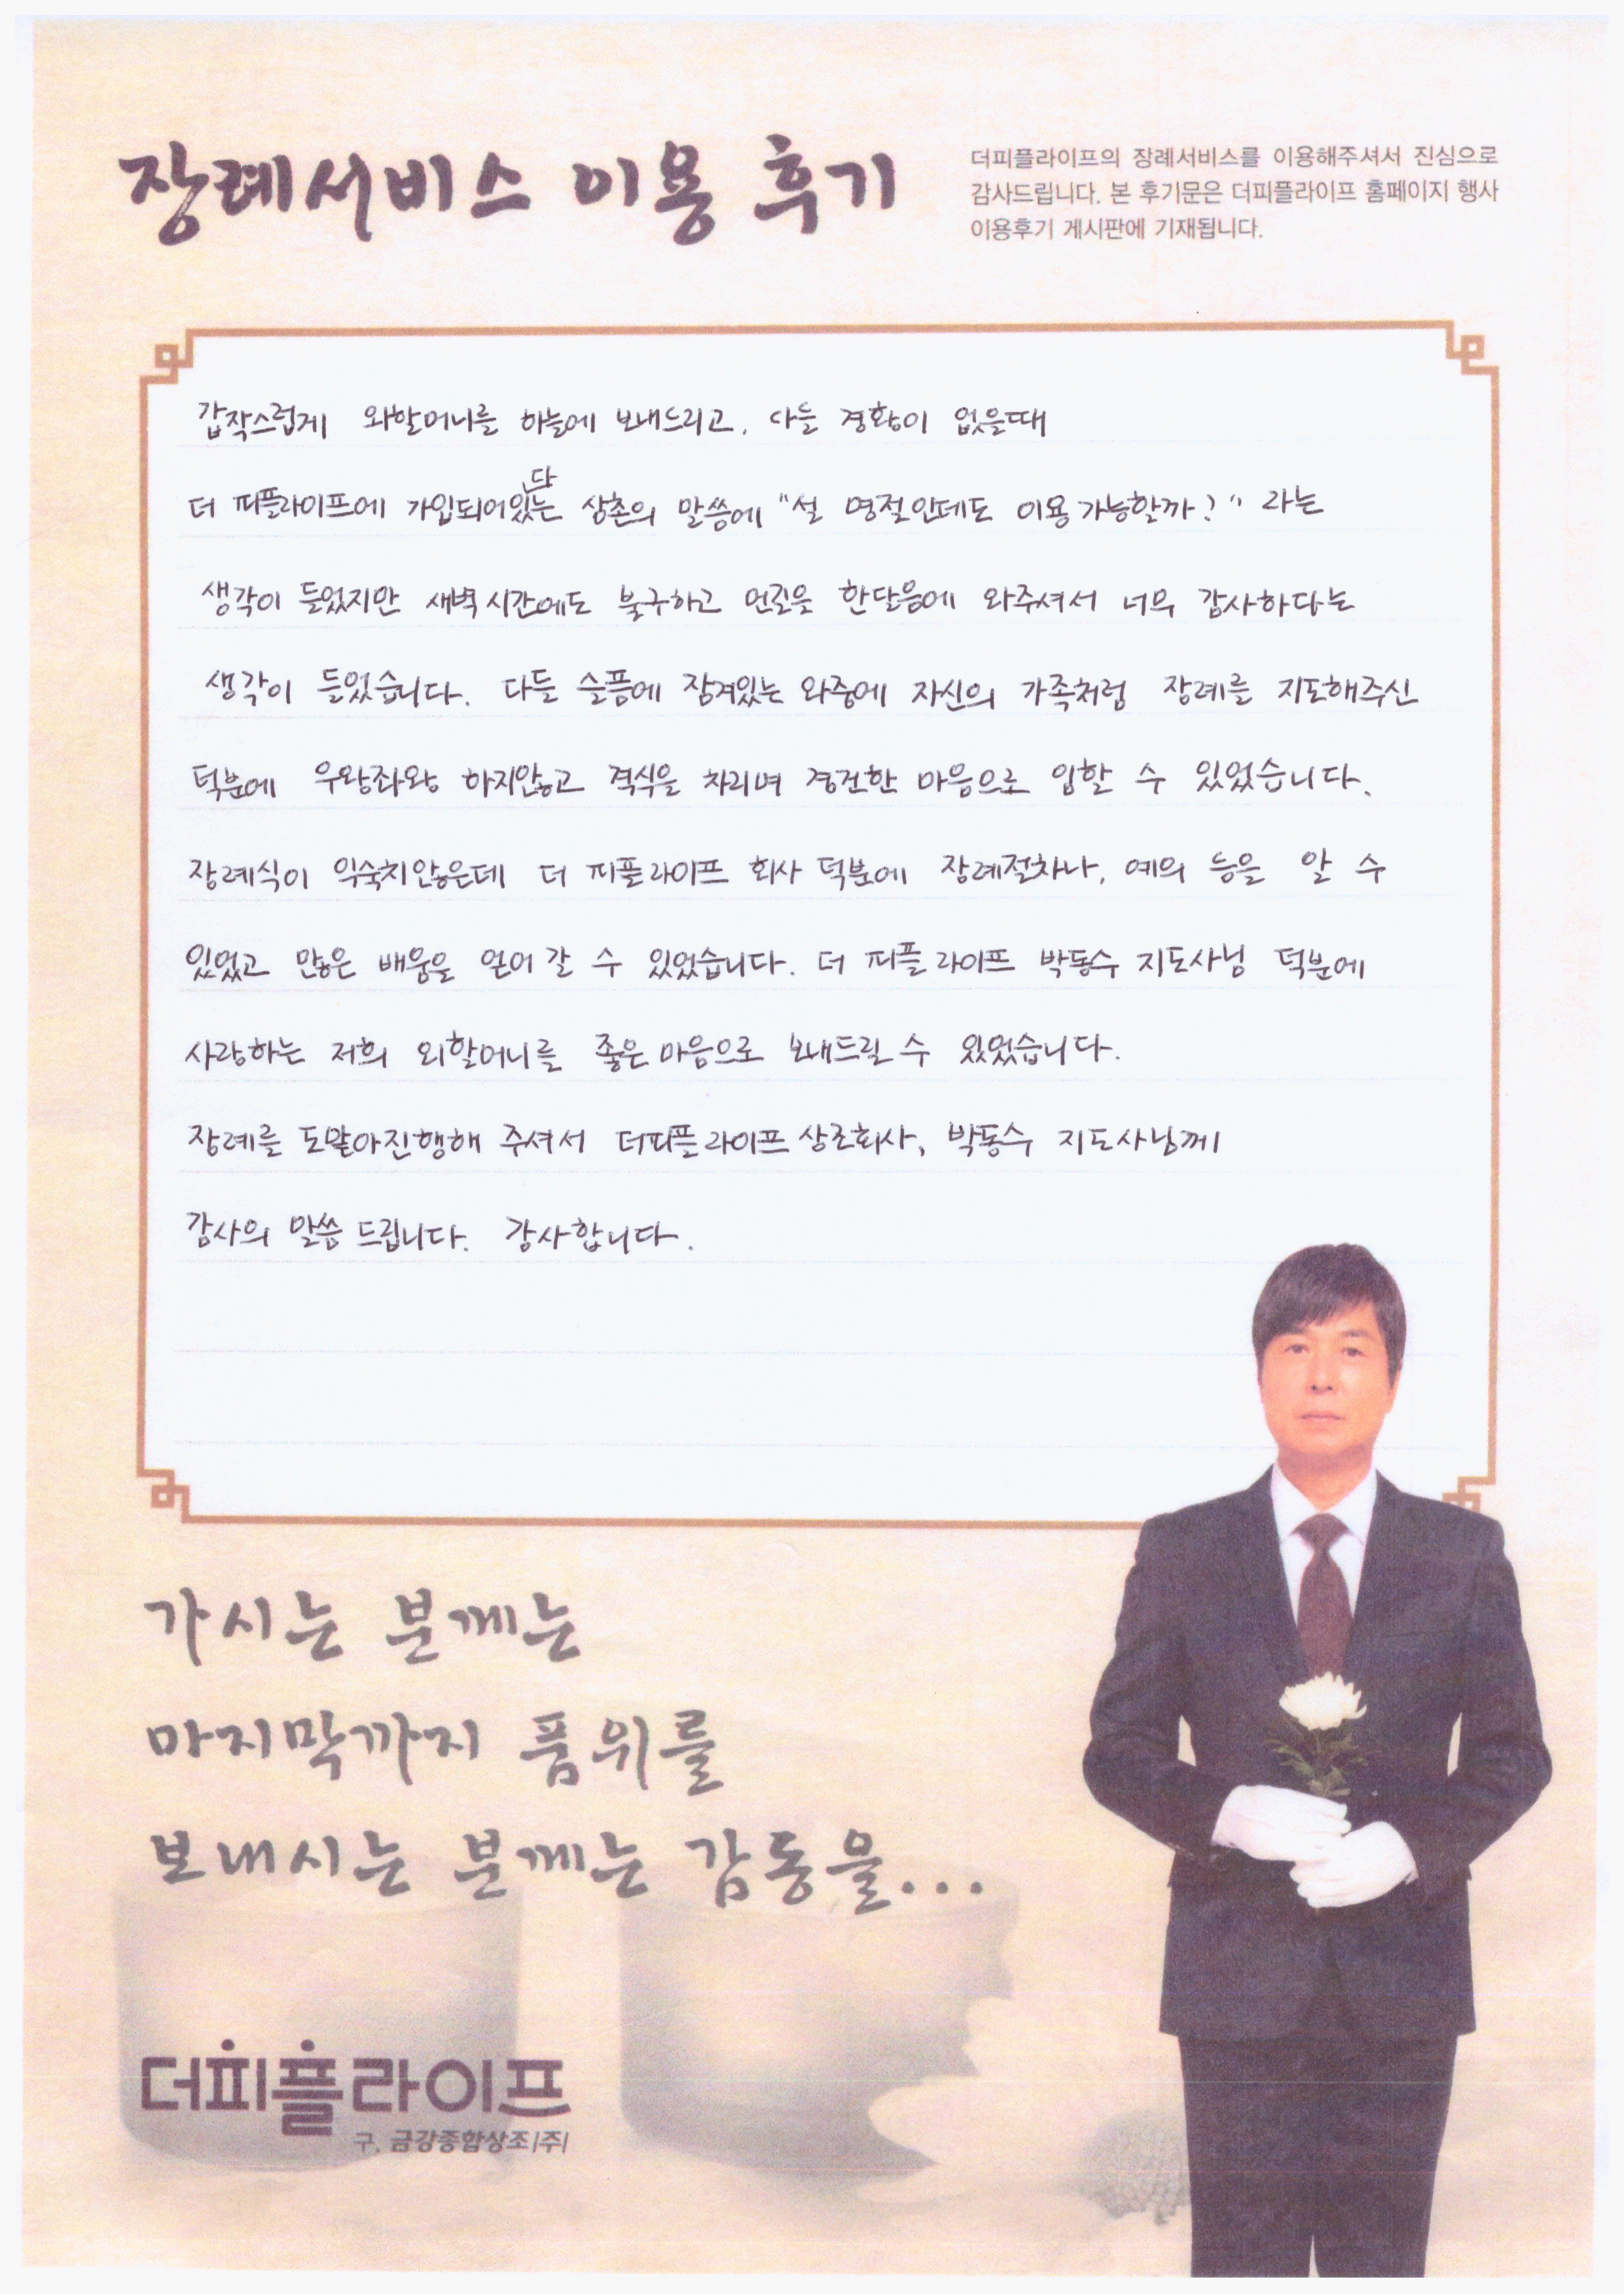 장례서비스 이용 후기
더피플라이프의 장례서비스를 이용해주셔서 진심으로
감사드립니다. 본 후기문은 더피플라이프 홈페이지 행사
이용후기 게시판에 기재됩니다.
갑작스럽게 외할머니를 하늘에 보내드리고, 다들 경황이 없을때
더 피플라이프에 가입되어있다는 삼촌의 말씀에 "설 명절인데도 이용가능할까?" 라는
생각이 들었지만 새벽시간에도 불구하고 먼길을 한달음에 와주셔서 너무 감사하다는
생각이 들었습니다. 다들 슬픔에 잠겨있는 와중에 자신의 가족처럼 장례를 지도해주신
덕분에 우왕좌왕 하지않고 격식을 차리며 경건한 마음으로 임할 수 있었습니다.
장례식이 익숙치않은데 더 피플라이프 회사 덕분에 장례절차나, 예의 등을 알 수
있었고 많은 배움을 얻어 갈 수 있었습니다. 더 피플라이프 박동수 지도사님 덕분에
사랑하는 저희 외할머니를 좋은 마음으로 보내드릴 수 있었습니다.
장례를 도맡아진행해 주셔서 더피플라이프 상조회사, 박동수 지도사님께
감사의 말씀 드립니다. 감사합니다.
가시는 분께는
마지막까지 품위를
보내시는 분께는 감동을...
더피플라이프
구. 금강종합상조(주)